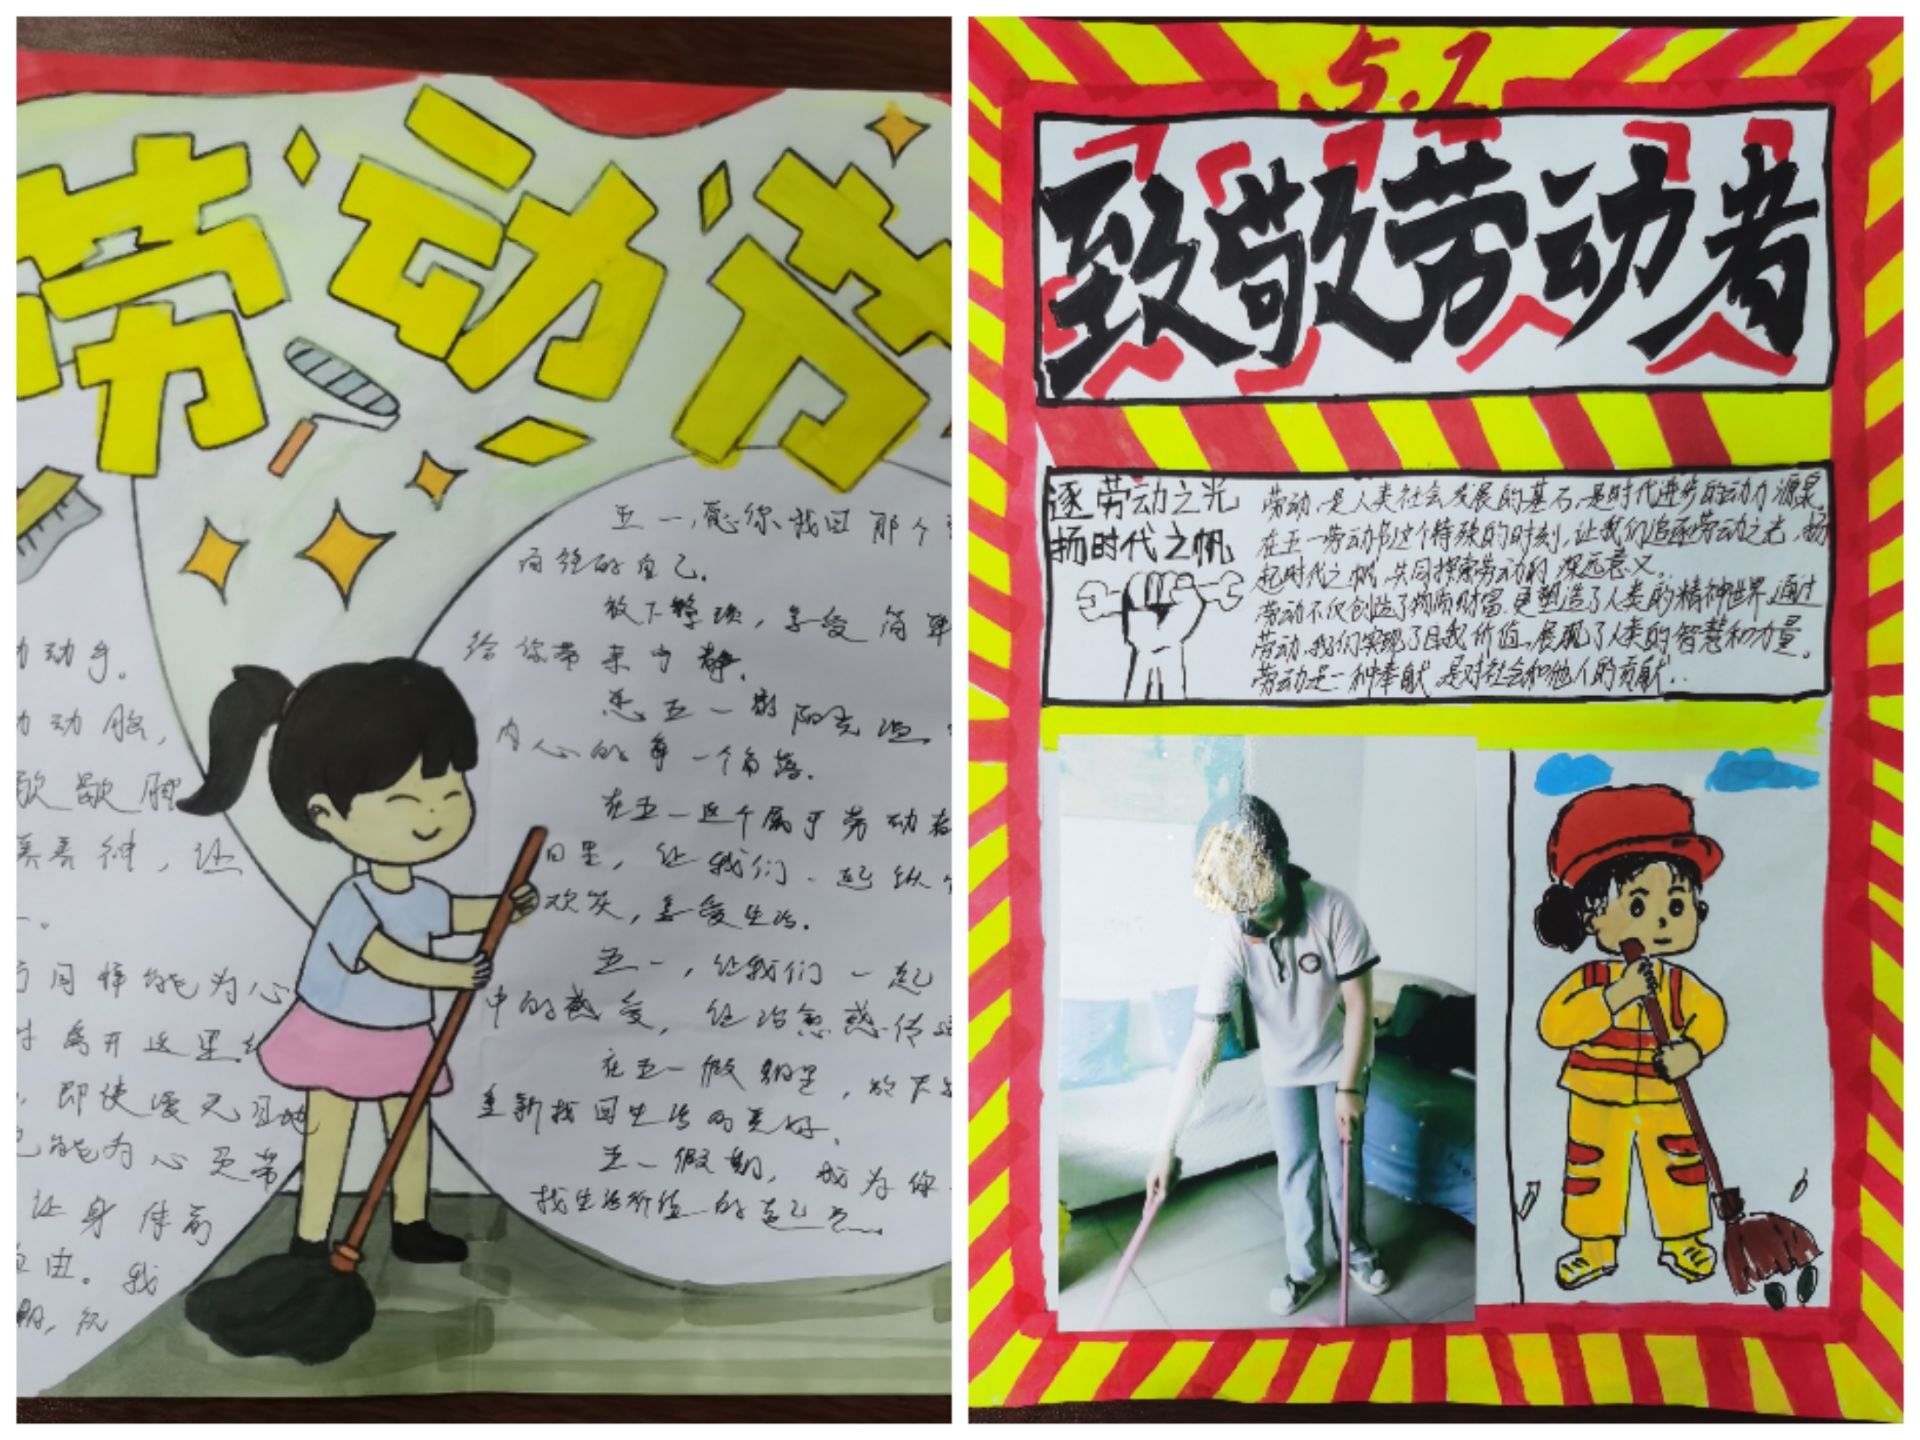 劳动节
动动手。
动动脑，
养养神，让
同样能为心
离开这里
即使漫无目地
能为心灵带
让身体
自由。我
五一，愿你找回那个
的自己。
放下繁琐，享受简单
给你带来宁静。
愿五一的阳光温
内心的每一个角落。
在五一这个属于劳动者
日里，让我们一起纵
欢笑，享受生活。
五一，让我们一起
中的感受，让治愈感传
在五一假期里，放下
重新找回生活的美好。
五一假期，成为你
找生活价值的起点。
5.1
致敬劳动者
逐劳动之光
扬时代之帆
劳动，是人类社会发展的基石，是时代进步的动力源泉。
在五一劳动节这个特殊的时刻，让我们追逐劳动之光，扬
起时代之帆，共同探索劳动的深远意义。
劳动不仅创造了物质财富，更塑造了人类的精神世界，通过
劳动，我们实现了自我价值，展现了人类的智慧和力量。
劳动是一种奉献，是对社会和他人的贡献..